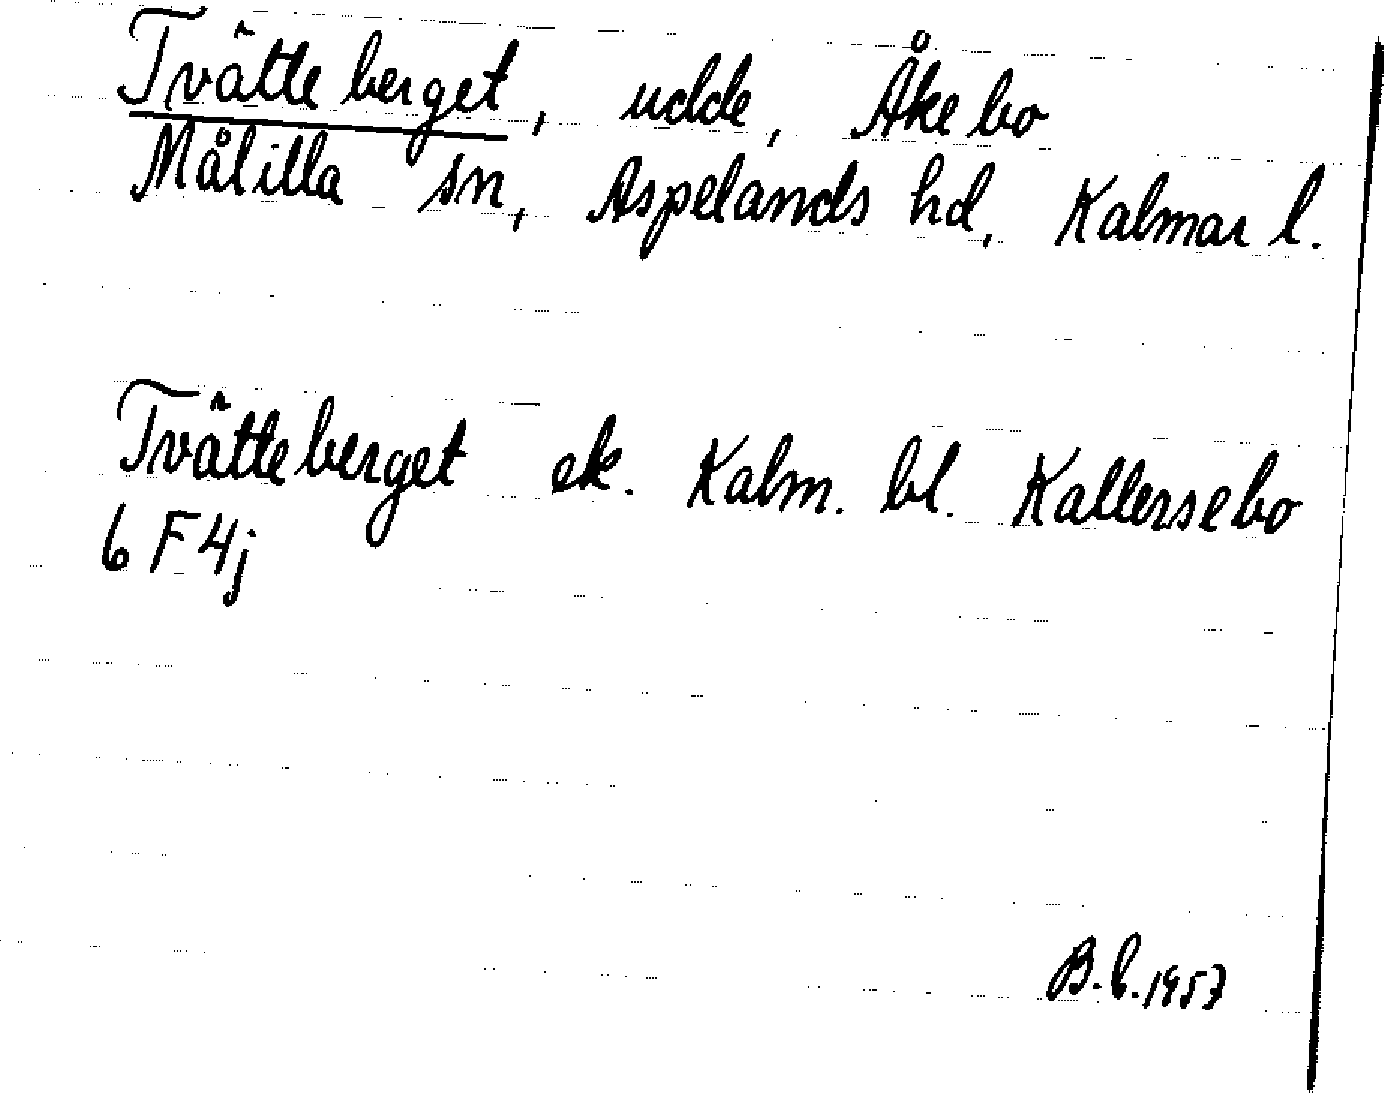 Tvätteberget, udde, Åkebo
Målilla sn, Aspelands hd, Kalmar l.
Tvätteberget ek. Kalm. bl. Kallersebo
6 F 4j
B.b. 1957